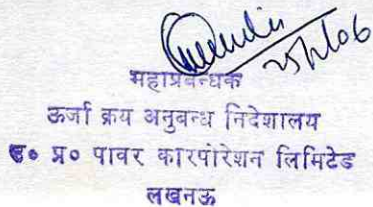 25/2/06
महाप्रबन्धक
ऊर्जा क्रय अनुबन्ध निदेशालय
उ० प्र० पावर कारपोरेशन लिमिटेड
लखनऊ